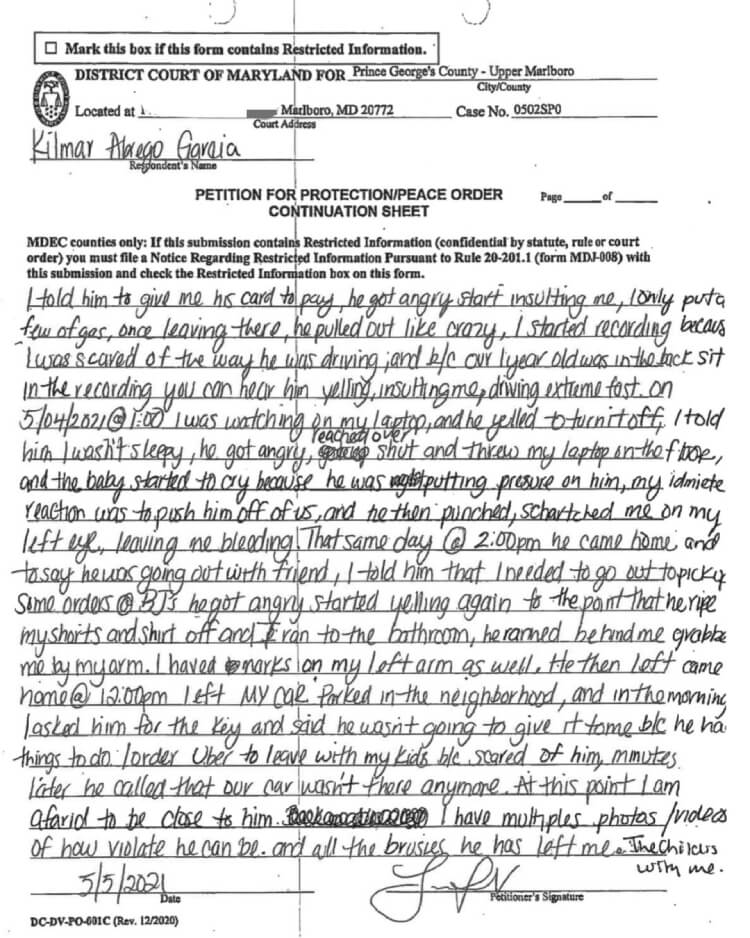 ☐ Mark this box if this form contains Restricted Information.
DISTRICT COURT OF MARYLAND FOR Prince George's County - Upper Marlboro
City/County
Located at Marlboro, MD 20772 Case No. 0502SP0
Court Address
Kilmar Abrego Garcia
Respondent's Name
PETITION FOR PROTECTION/PEACE ORDER
CONTINUATION SHEET
Page ____ of ____
MDEC counties only: If this submission contains Restricted Information (confidential by statute, rule or court
order) you must file a Notice Regarding Restricted Information Pursuant to Rule 20-201.1 (form MDJ-008) with
this submission and check the Restricted Information box on this form.
I told him to give me his card to pay, he got angry start insulting me, I only put a
few of gas, once leaving there, he pulled out like crazy, I started recording becaus
I was scared of the way he was driving, and b/c our 1 year old was in the back sit
in the recording you can hear him yelling, insulting me, driving extreme fast. on
5/04/2021 @ 1:00 I was watching on my laptop, and he yelled to turn it off, I told
him I wasn't sleepy, he got angry, reached over shut and threw my laptop on the floor,
and the baby started to cry because he was putting presure on him, my idmiete
reaction was to push him off of us, and he then punched, schartched me on my
left eye, leaving me bleeding. That same day @ 2:00pm he came home and
to say he was going out with friend, I told him that I needed to go out to pick
some orders @ BJ's he got angry started yelling again to the point that he ripe
my shorts and shirt off and I ran to the bathroom, he ranned behind me grabbe
me by my arm. I haved marks on my left arm as well. He then left came
home @ 12:00pm left my car parked in the neighborhood, and in the morning
I asked him for the key and said he wasn't going to give it to me b/c he ha
things to do. I order Uber to leave with my kids b/c scared of him, mnutes
later he called that our car wasn't there anymore. At this point I am
afarid to be close to him. I have multiples photos/videos
of how violate he can be. and all the brusies he has left me. The Child is
with me.
5/5/2021
Date
Petitioner's Signature
DC-DV-PO-001C (Rev. 12/2020)